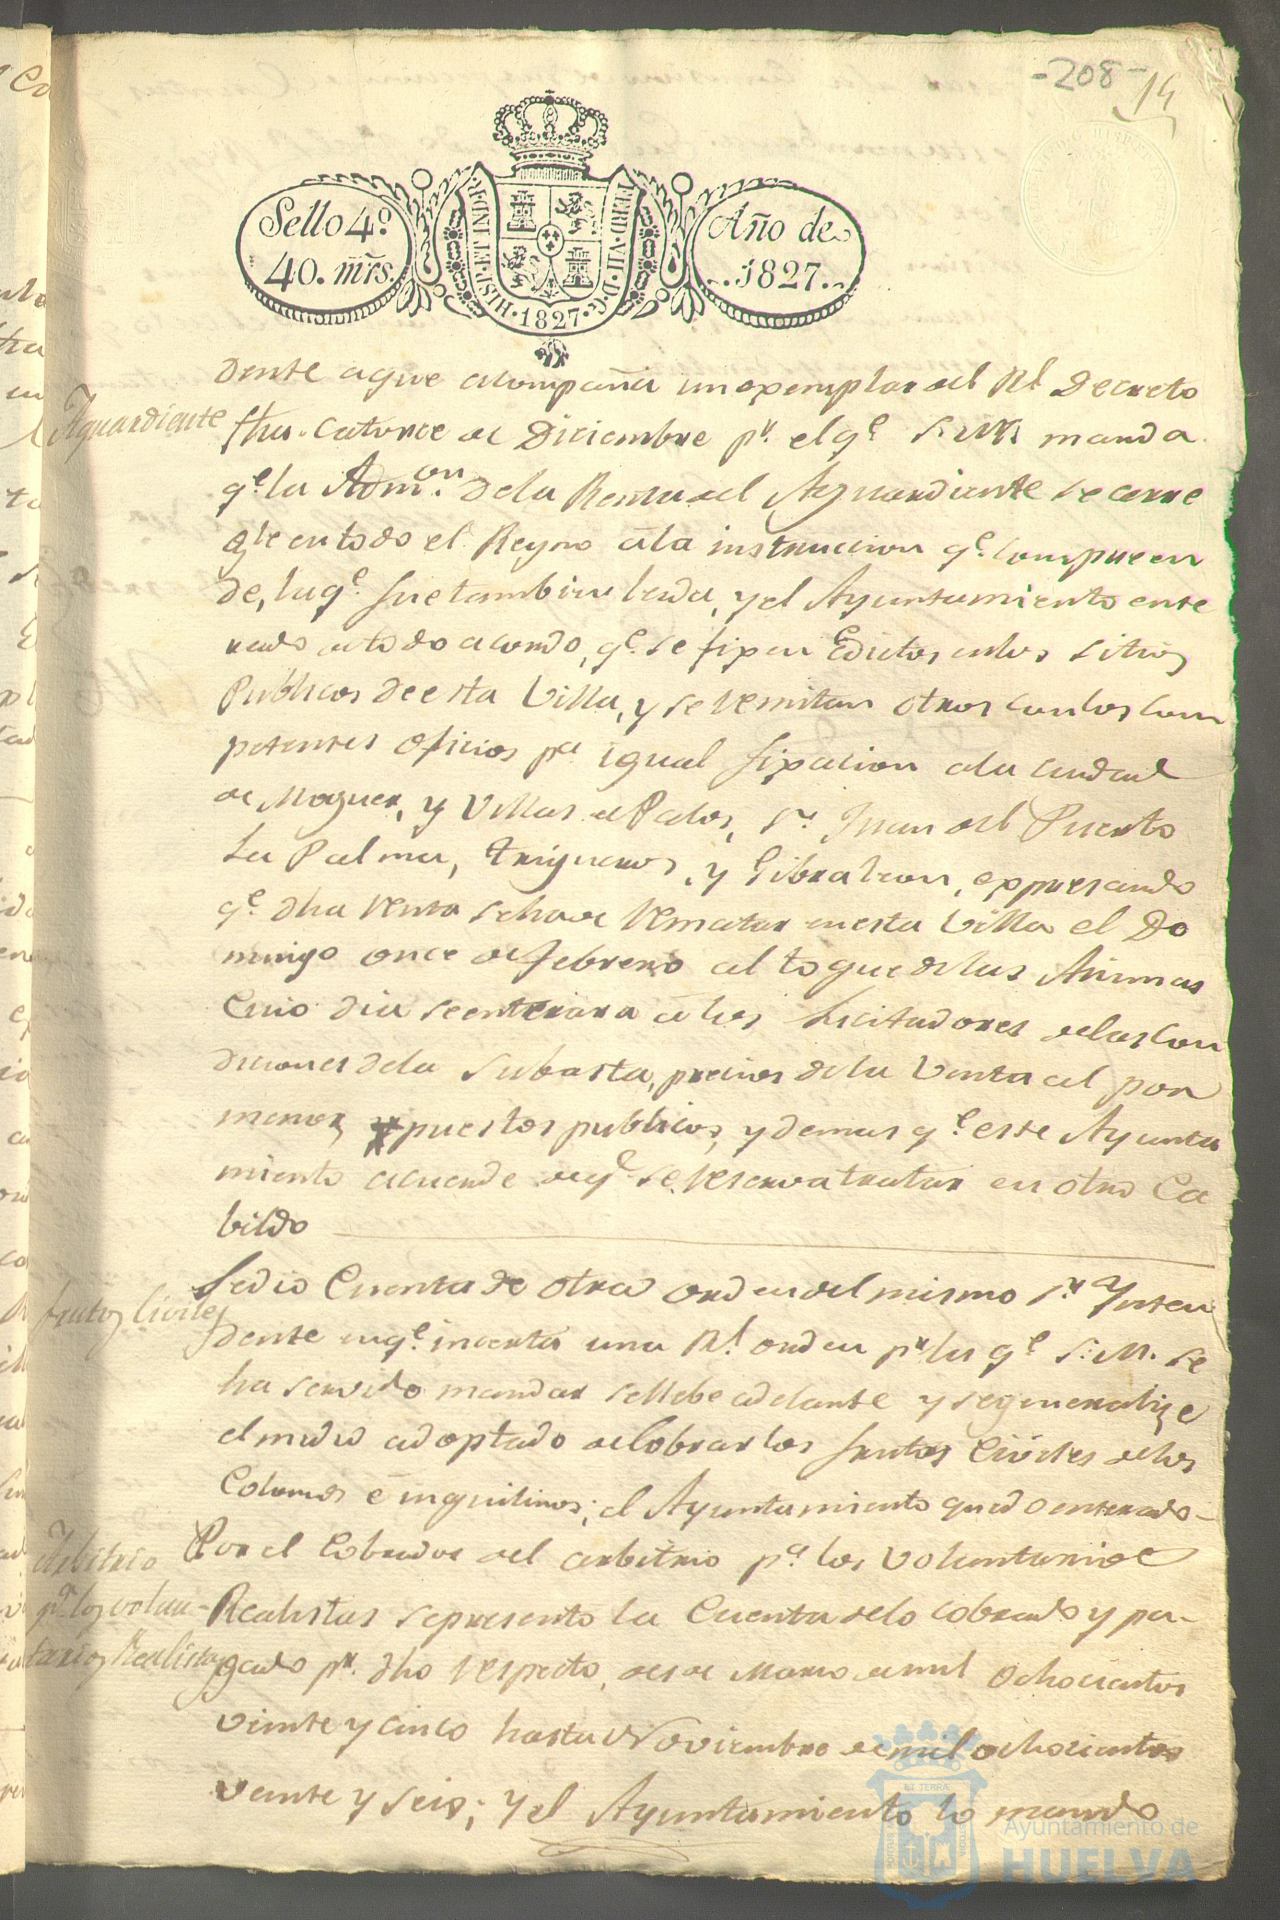 -208-
14
Sello 4º
40. mrs.
HISP. ET IND. R.
FERD. VII. D. G.
1827
Año de
1827.
dente aque acompaña un exemplar del Rl Decreto
Aguardiente
fha. Catorce de Diciembre pr. el qe. S. M. manda
qe. la Admon. dela Renta del Aguardiente se arre
gle en todo el Reyno ála instruccion qe. compreen
de, la qe. fue tambien leida, y el Ayuntamiento ente
rado de todo acordo, qe. se fixen Edictos enlos sitios
Publicos de esta Villa, y se remitan otros conlos com
petentes oficios pa. igual fixacion ala ciudad
de Moguer, y Villas de Palos, Sn. Juan del Puerto
La Palma, Trigueros, y Gibraleon, expresando
qe. dha renta se ha de rematar en esta Villa el Do
mingo once de febrero al toque de las Animas
Cuio dia se enterara á los Licitadores de las con
diciones dela subasta, precios de la Venta al por
menor, puestos publicos, y demas qe. este Ayunta
miento acuerde de qe. se reserva tratar en otro Ca
bildo
Se dio Cuenta de otra orden del mismo Sr. Ynten
frutos Civiles
dente en qe. inserta una Rl. orden pr. la qe. S. M. se
ha servido mandar se llebe adelante y se generalize
el medio adoptado de Cobrar los frutos Civiles de los
Colonos é inquilinos; el Ayuntamiento quedo enterado-
Arbitrio
Por el Cobrador del arbitrio pa. los Voluntarios
pa. los volun-
Realistas se presento la Cuenta de lo cobrado y pa-
tarios Realistas
gado pr. dho respecto, desde Marzo de mil ochocientos
veinte y cinco hasta Noviembre de mil ochocientos
veinte y seis; y el Ayuntamiento la mando
Ayuntamiento de
HUELVA